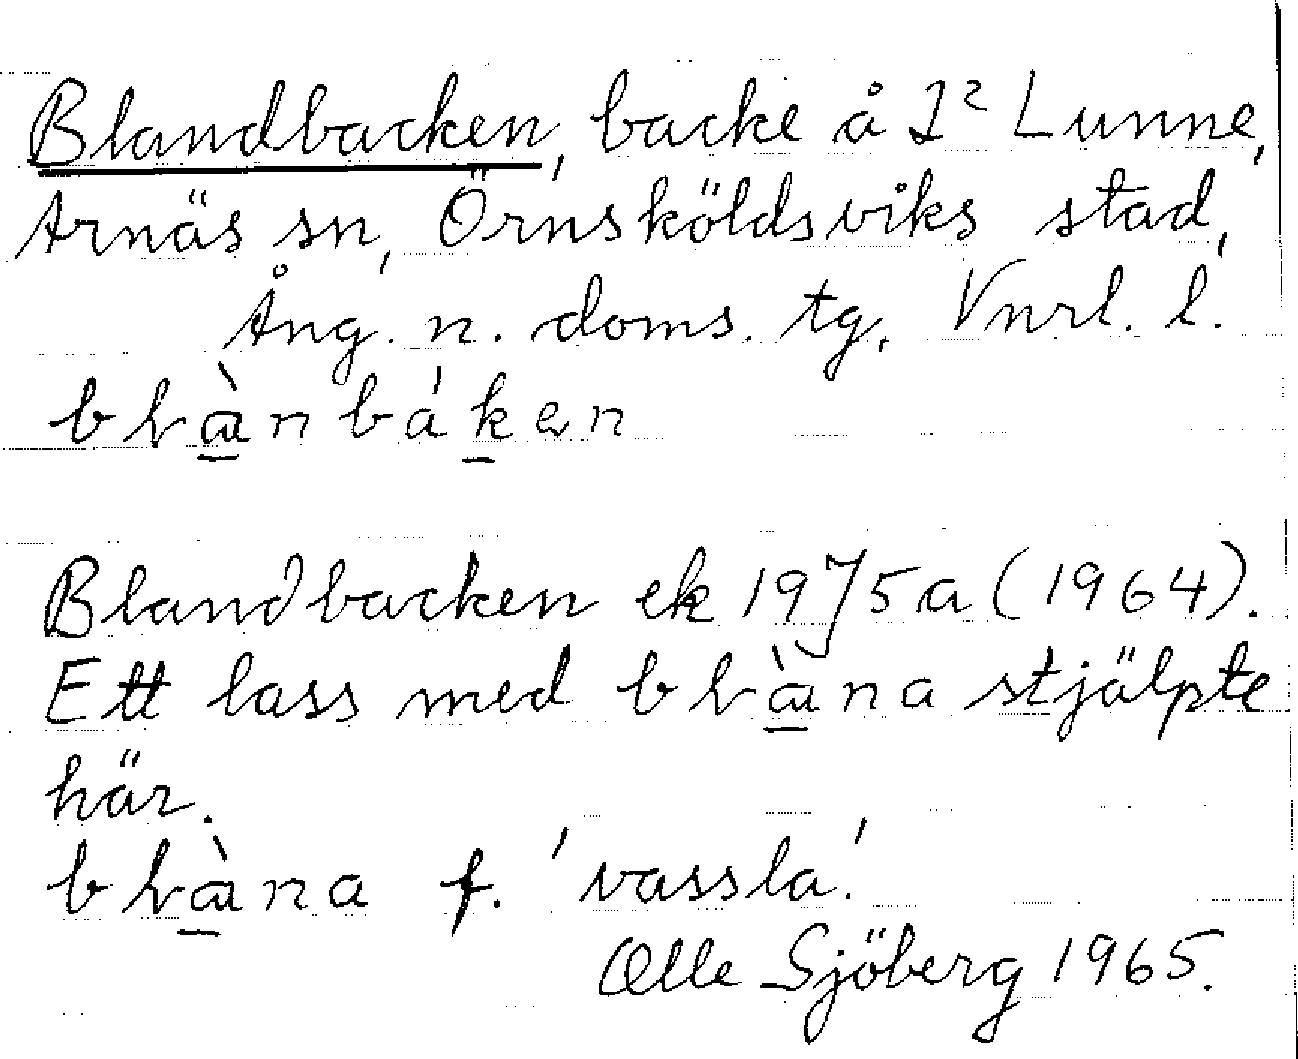 Blandbacken, backe å 1² Lunne,
Arnäs sn, Örnsköldsviks stad,
Ång. n. doms. tg, Vnrl. l.
bḷà̱nbák̠en
Blandbacken ek 1975a (1964).
Ett lass med bḷà̱na stjälpte
här.
bḷà̱na f. 'vassla'.
Olle Sjöberg 1965.